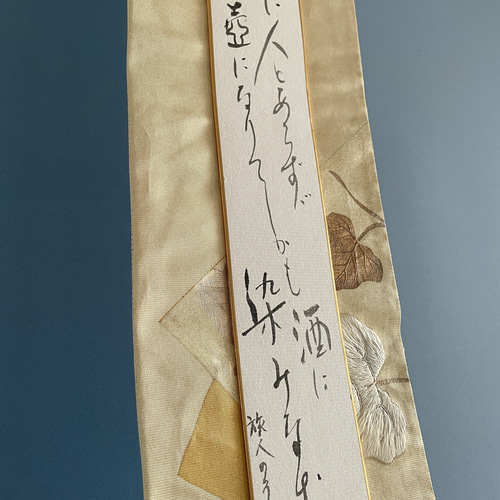 に人とあらずば
壺になりてしかも
酒に
染みなむ
旅人の